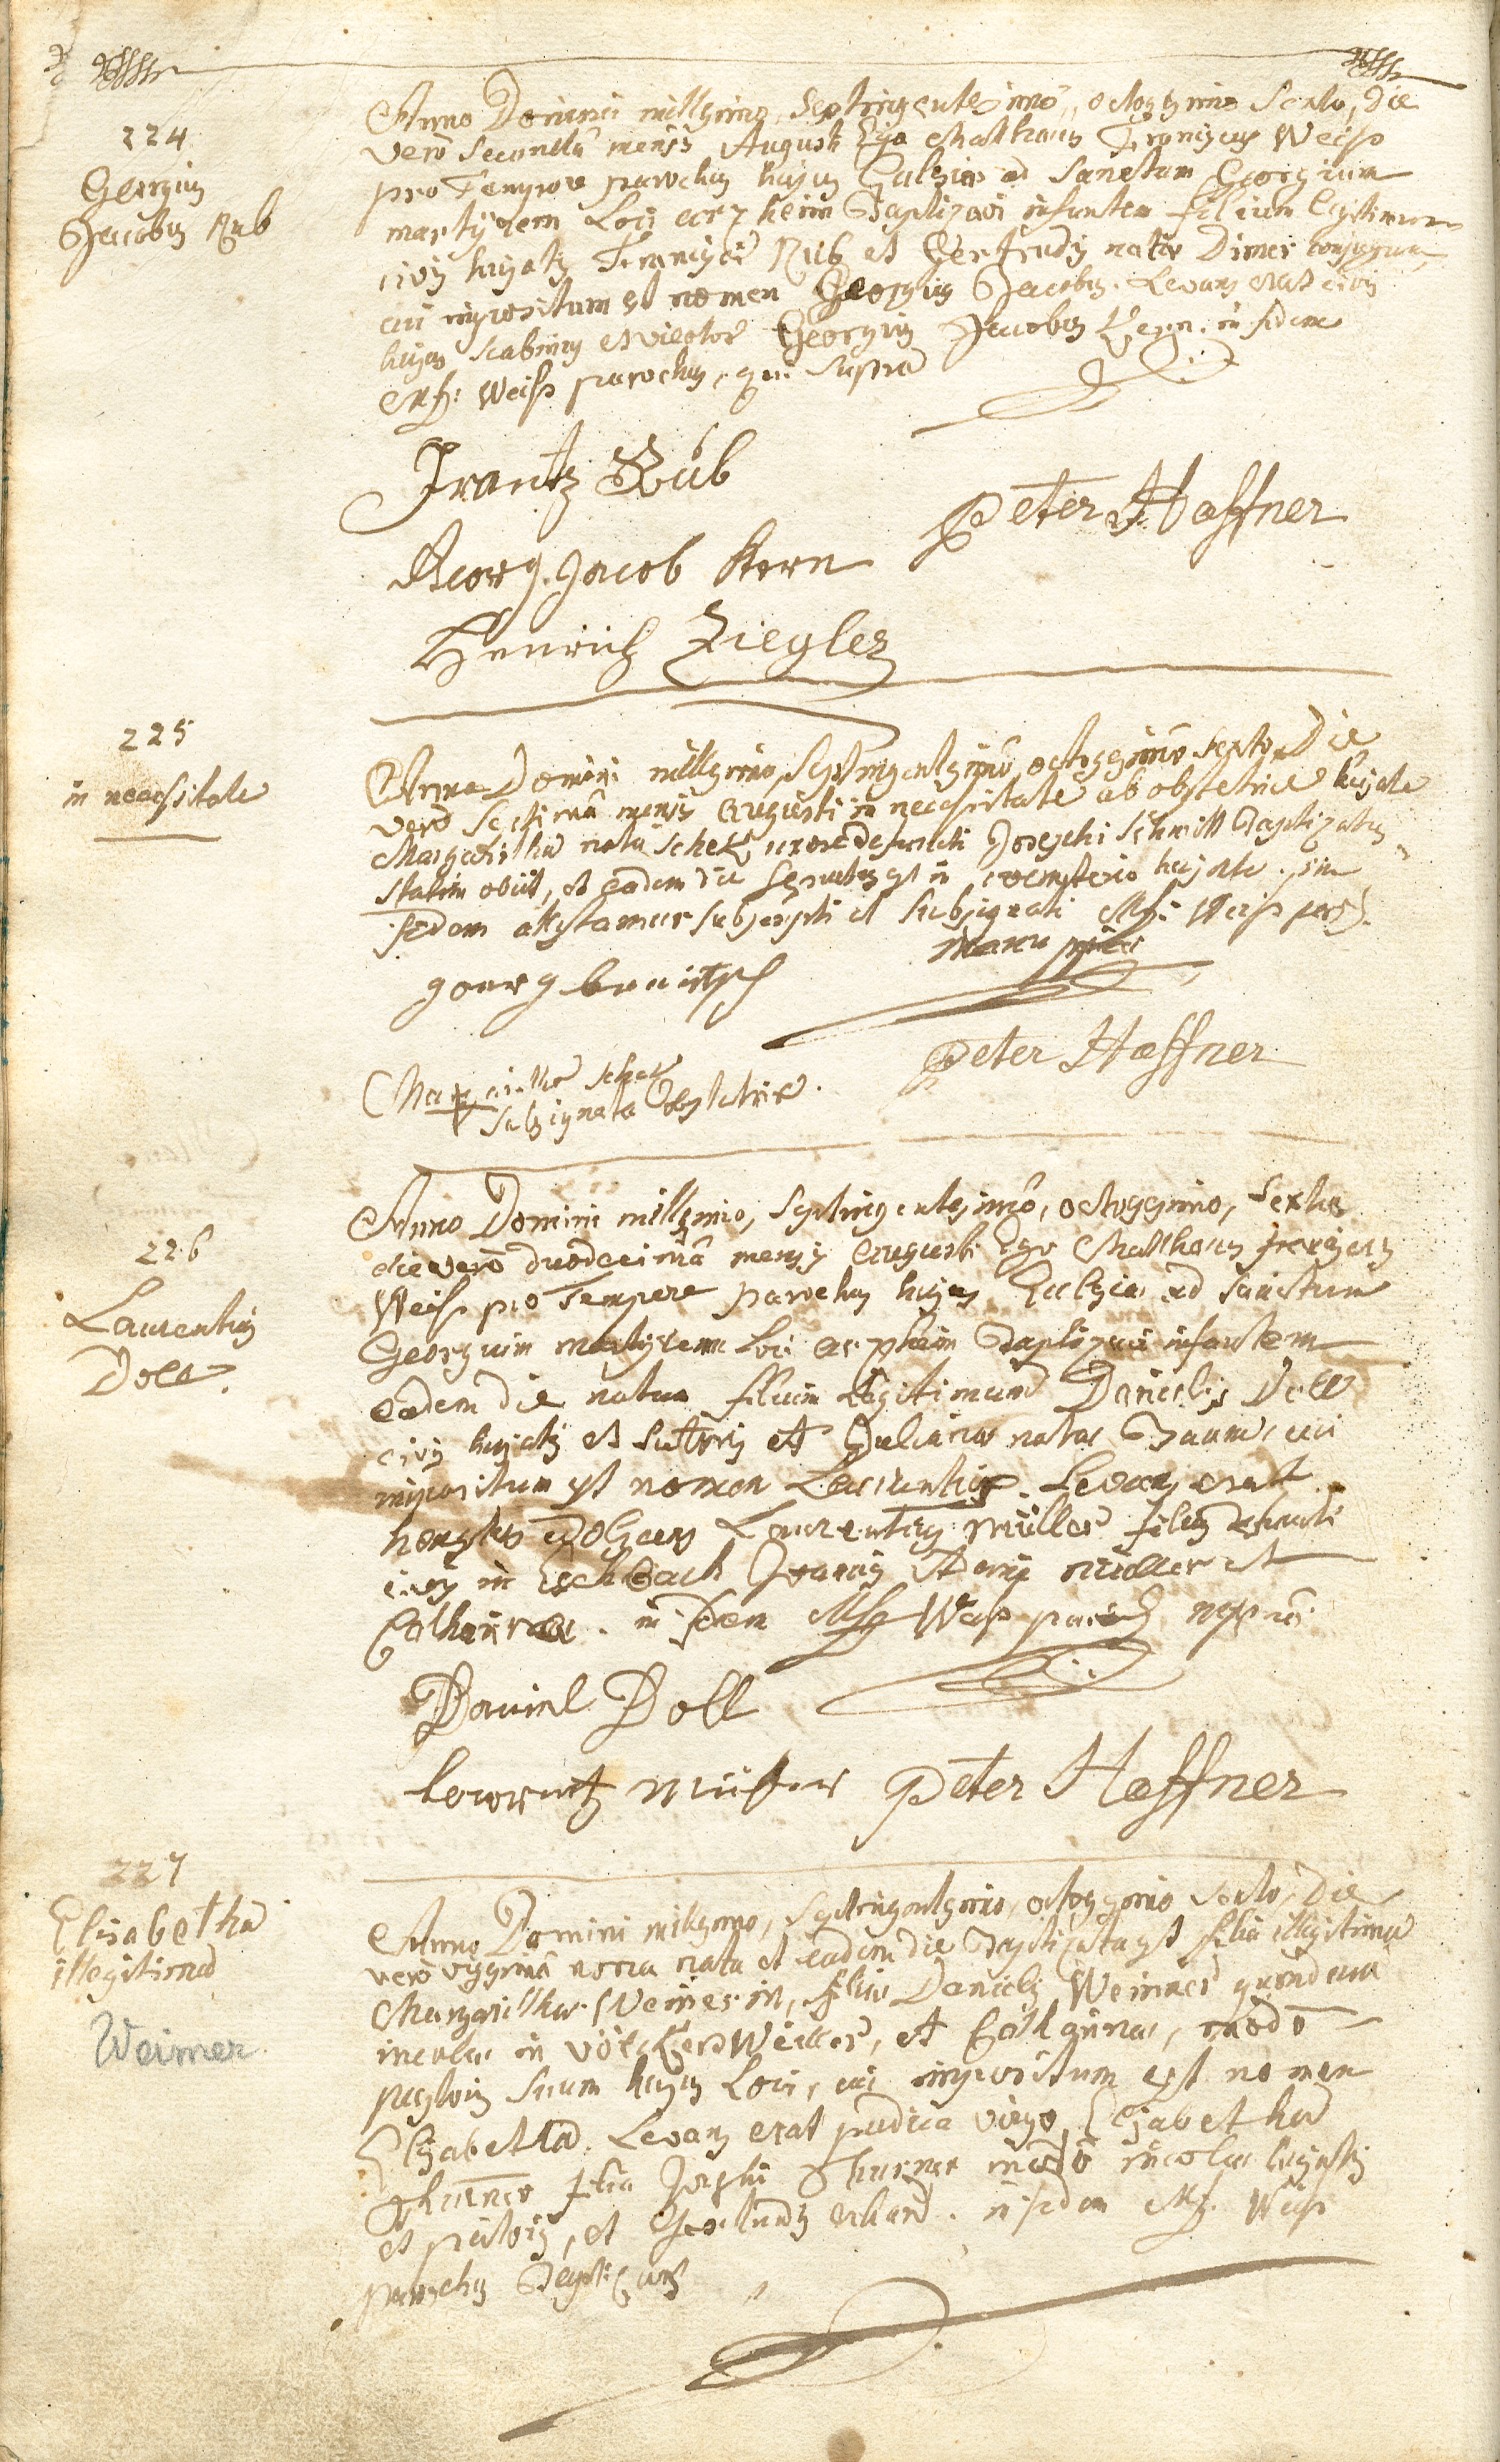 224
Georgius
Jacobus Rub
Anno Domini millesimo, septingentesimo, octogesimo sexto, die
vero secunda mensis Augusti Ego Matthaeus Franciscus Weiss
pro Tempore parochus hujus Eclesiae ad Sanctum Georgium
martyrem Loci arzheim Baptizavi infantem filium legitimum
civis hujatis Francisci Rub et Gertrudis natae Dimer conjugum,
cui impositum est nomen Georgius Jacobus. Levans erat civis
hujus scabinus et vietor Georgius Jacobus Kern. in fidem
Mf: Weiss parochus, qui supra
Frantz Rüb
Peter Haffner
Georg. Jacob Kern
Henrich Ziegler
225
in necessitate
Anno Domini millesimo, septingentesimo, octogesimo sexto, Die
vero septima mensis Augusti in necessitate ab obstetrice hujate
Margaritha nata schek, uxore defuncti Josephi Schmitt Baptizatus
statim obiit, et eadem die sepultus est in coemeterio hujate. in
fidem attestamur subscripti et subsignati Mf: Weiss par.
manu propria
georg
Peter Haffner
Margaritha schek
subsignata obstetrix.
226
Laurentius
Doll.
Anno Domini millesimo, septingentesimo, octogesimo, sexto
die vero duodecima mensis Augusti Ego Matthaeus franciscus
Weiss pro Tempore parochus hujus Eclesiae ad sanctum
Georgium martyrem loci arzheim Baptizavi infantem
eadem die natum filium legitimum Danielis Doll
civis hujatis et sutoris et Julianae natae Baum, cui
impositum est nomen Laurentius. Levans erat
honestus adolescens Laurentius müller filius defuncti
civis in Eschbach Joannis Adami müller et
Catharinae. in fidem Mf Weiss parochus mppria
Daniel Doll
Lorentz Müller Peter Haffner
227
Elisabetha
illegitima
Weimer
Anno Domini millesimo, septingentesimo, octogesimo sexto, Die
vero vigesima nona nata et eadem die Baptizata est filia illegitima
Margarithae Weimerin, filiae Danielis Weimer quondam
incolae in völckersweiller, et Catharinae, modo
pastoris suum hujus Loci, cui impositum est nomen
Elisabetha. Levans erat pudica virgo Elisabetha
Thurner filia Josephi Thurner modo incolae hujatis
et pastoris, et Gertrudis. in fidem Mf. Weiss
parochus Baptizans